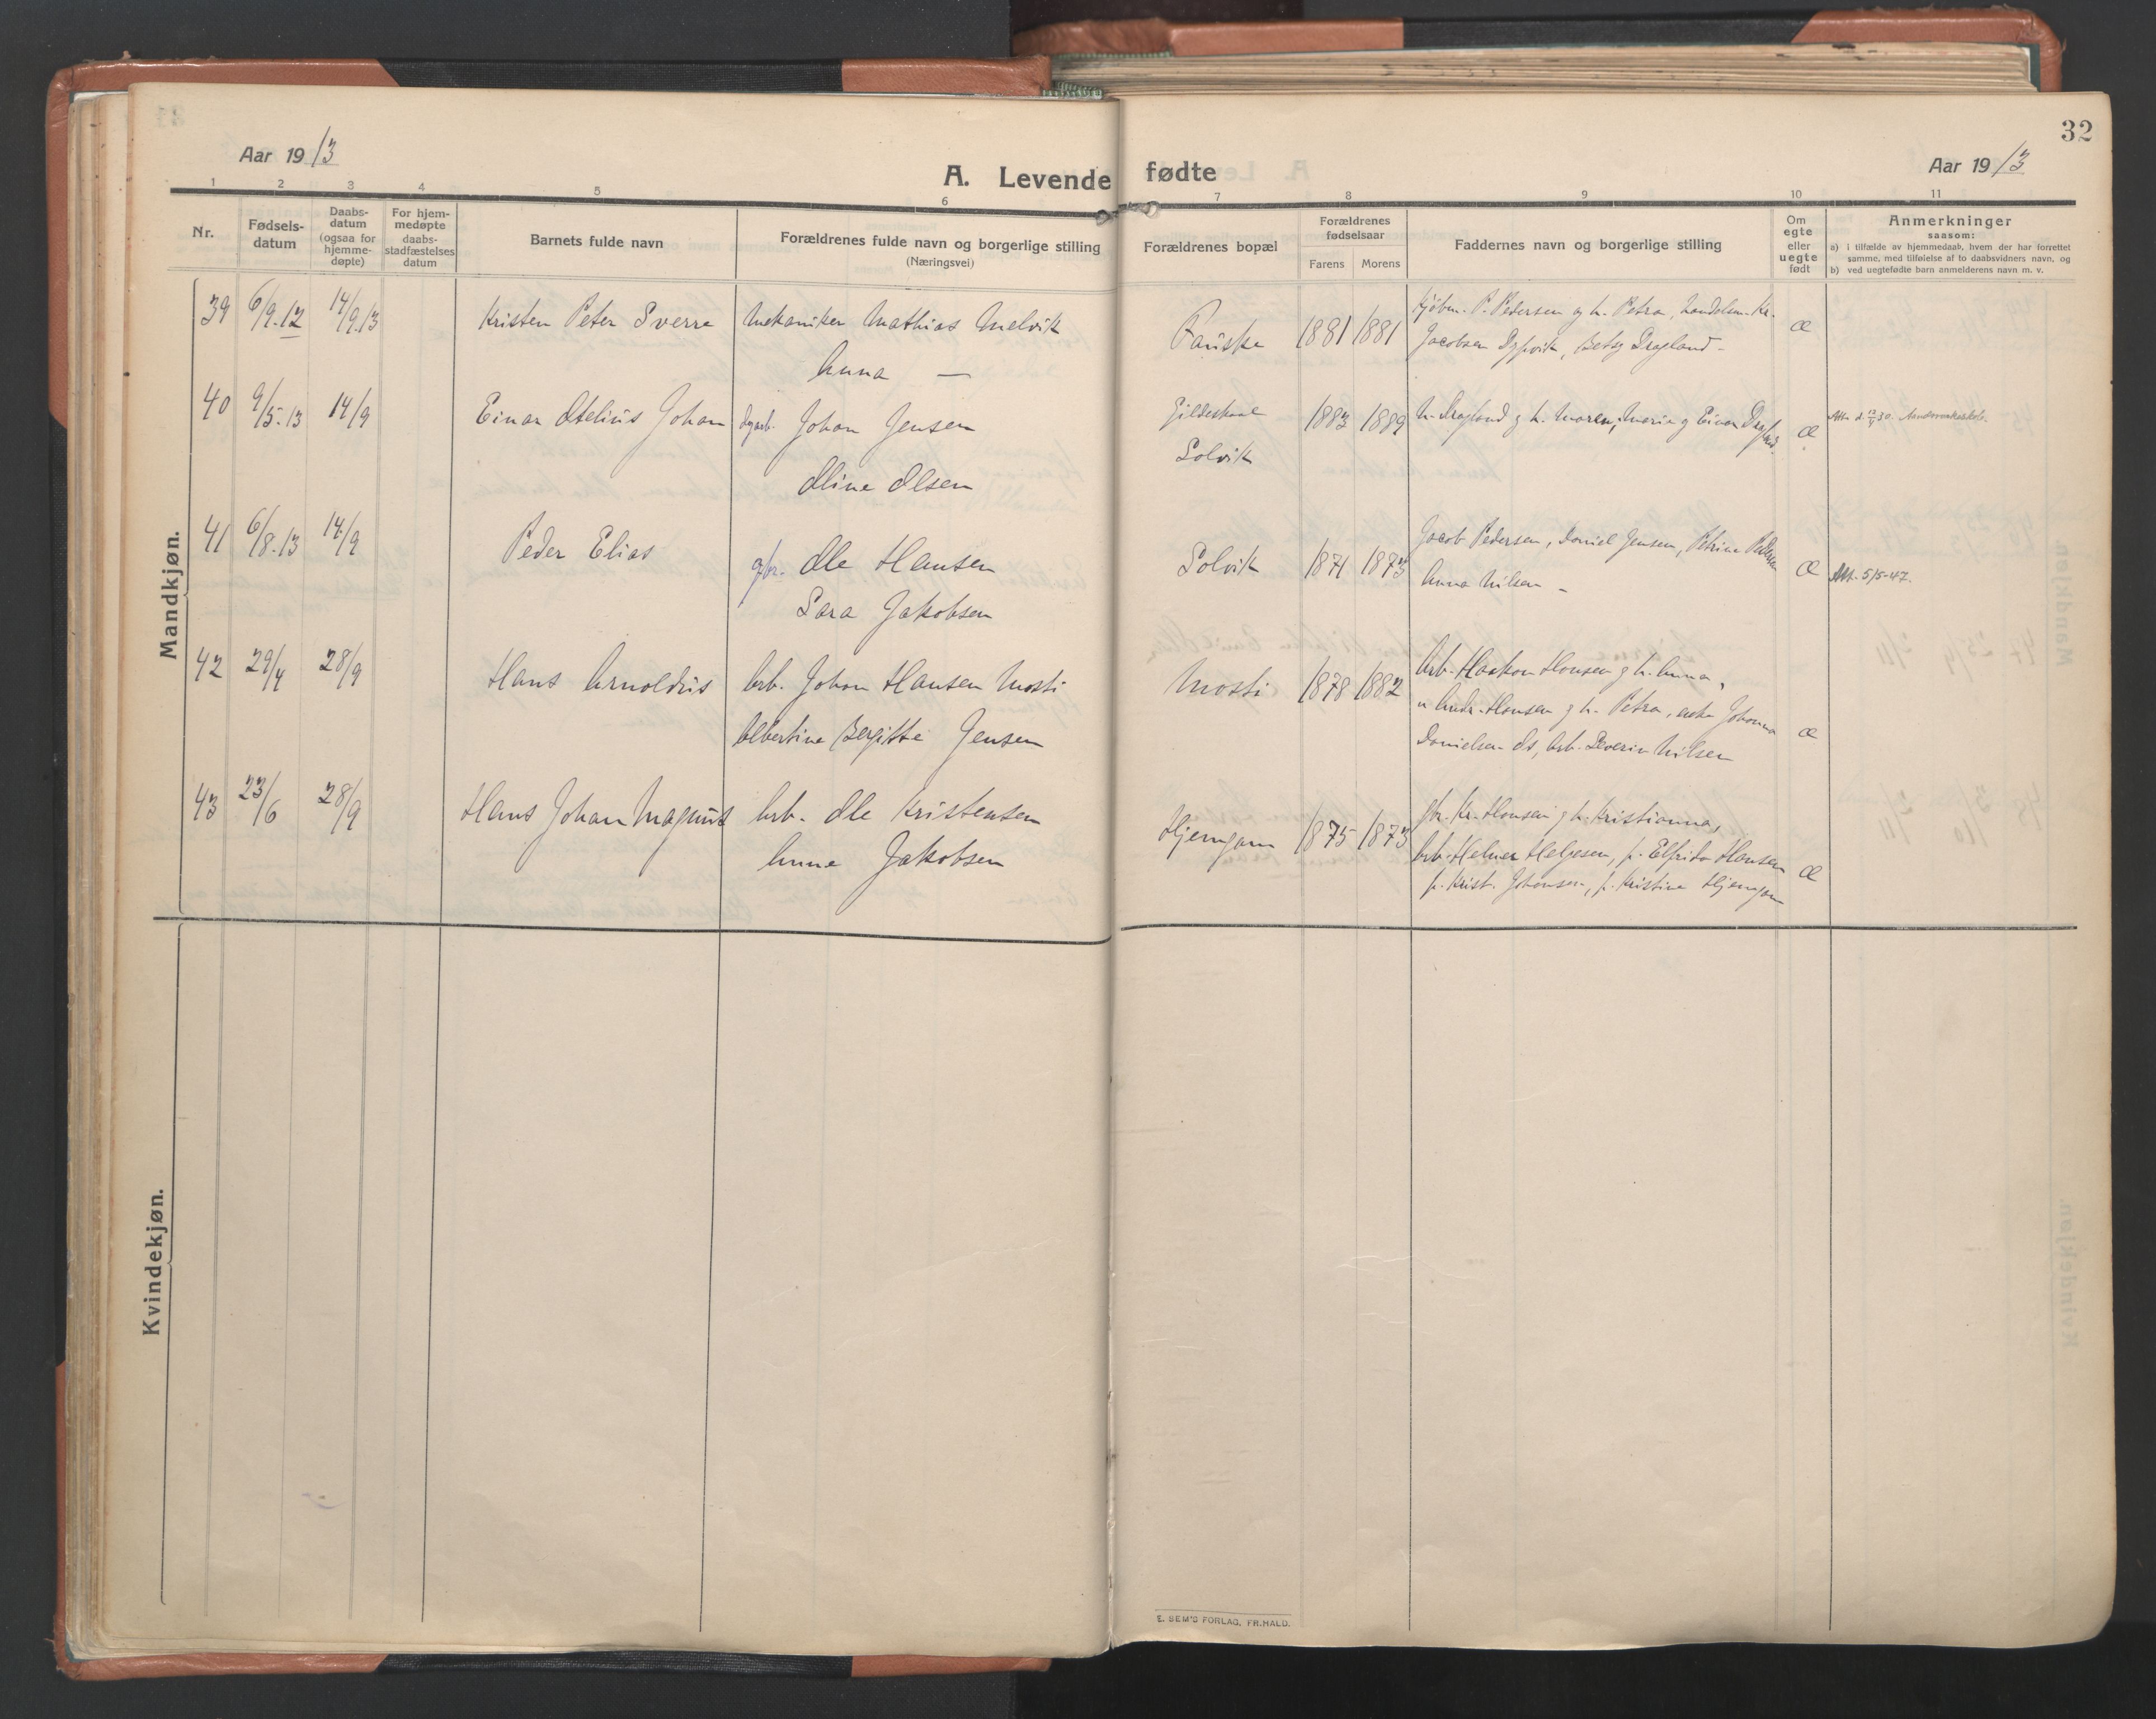 32
Aar 1913
A. Levende fødte
Aar 1913
1 2 3 4 5 6 7 8 9 10 11
Nr.
Fødsels-
datum
Daabs-
datum
(ogsaa for
hjemme-
døpte)
For hjem-
medøpte
daabs-
stadfæstelses
datum
Barnets fulde navn
Forældrenes fulde navn og borgerlige stilling
(Næringsvei)
Forældrenes bopæl
Forældrenes
fødselsaar
Farens Morens
Faddernes navn og borgerlige stilling
Om
egte
eller
uegte
født
Anmerkninger
saasom:
a) i tilfælde av hjemmedaab, hvem der har forrettet
samme, med tilføielse af to daabsvidners navn, og
b) ved uegtefødte barn anmelderens navn m. v.
Mandkjøn.
39 6/9.12 14/9.13 Kristen Peter Sverre Mekaniker Mathias Melvik
Anna —
Fauske 1881 1881 Kjøbm. P. Pedersen og h. Petra, Handelsm. Kr.
Jacobsen Dypvik, Betsy Dragland - Æ
40 9/5.13 14/9 Einar Otelius Johan Johan Jensen
Oline Olsen
Gildeskaal
Solvik
1883 1889 N. Dragland og h. Maren, Marie og Einar Dragland. Æ
41 6/8.13 14/9 Peder Elias gbr. Ole Hansen
Sara Jakobsen
Solvik 1871 1873 Jacob Pedersen, Daniel Jensen, Petrine Pedersen
Anna Nilsen - Æ Att. 5/5-47.
42 29/4 28/9 Hans Arnoldus Arb. Johan Hansen Mosti
Albertine Bergitte Jensen
Mosti 1878 1882 Arb. Haakon Hansen og h. Anna,
" Andr. Hansen og h. Petra, enke Johanna
Danielsen ds, Arb. Severin Nilsen Æ
43 23/6 28/9 Hans Johan Magnus Arb. Ole Kristensen
Anne Jakobsen
Hjemgam 1875 1873 gbr. Kr. Hansen og h. Kristianna,
Arb. Helmer Helgesen, p. Elfrida Hansen
p. Krist. Johansen, p. Kristine Hjemgam Æ
Kvindekjøn.
E. SEM'S FORLAG, FR.HALD.